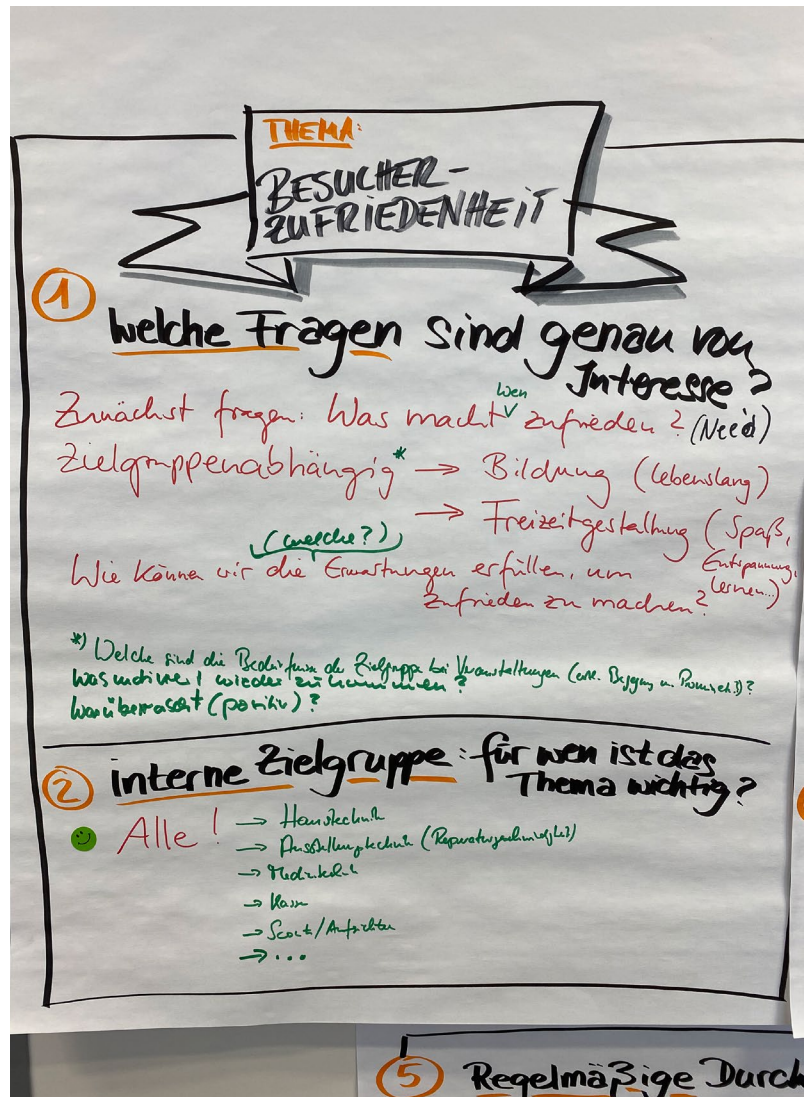 THEMA:
BESUCHER-
ZUFRIEDENHEIT
1
Welche Fragen sind genau von
Interesse?
wen
Zunächst fragen: Was macht zufrieden? (Need)
Zielgruppenabhängig* → Bildung (lebenslang)
→ Freizeitgestaltung (Spaß,
Entspannung,
lernen...)
(welche?)
Wie können wir die Erwartungen erfüllen, um
zufrieden zu machen?
*) Welche sind die Bedürfnisse der Zielgruppe bei Veranstaltungen
was motiviert wiederzukommen?
Was überrascht (positiv)?
2
interne Zielgruppe: für wen ist das
Thema wichtig?
Alle!
→ Haustechnik
→ Ausstellungstechnik
→ Medientechnik
→ Kasse
→ Scouts/Aufsichten
→ ...
5
Regelmäßige Durch